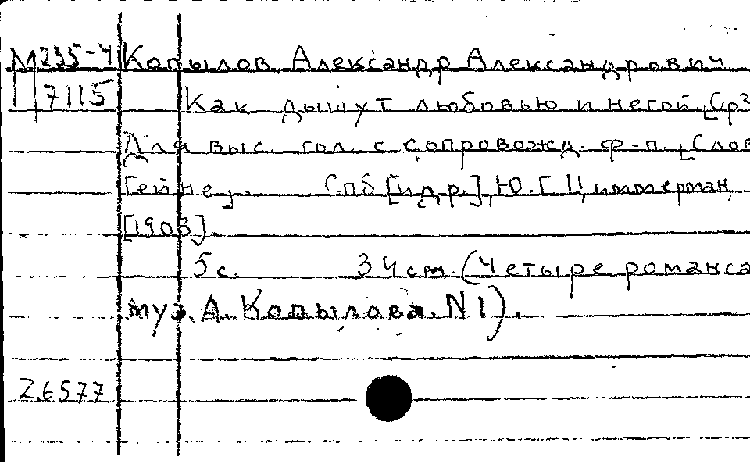 М235-4 Копылов, Александр Александрович
7115 Как дышут любовью и негой [Ср
Для выс. гол. с сопровожд. ф.-п. [Слов
Гейне]. Спб [и др.], Ю. Г. Циммерман,
[1903].
5 с. 34 см. (Четыре романса
муз. А. Копылова. N 1).
26577